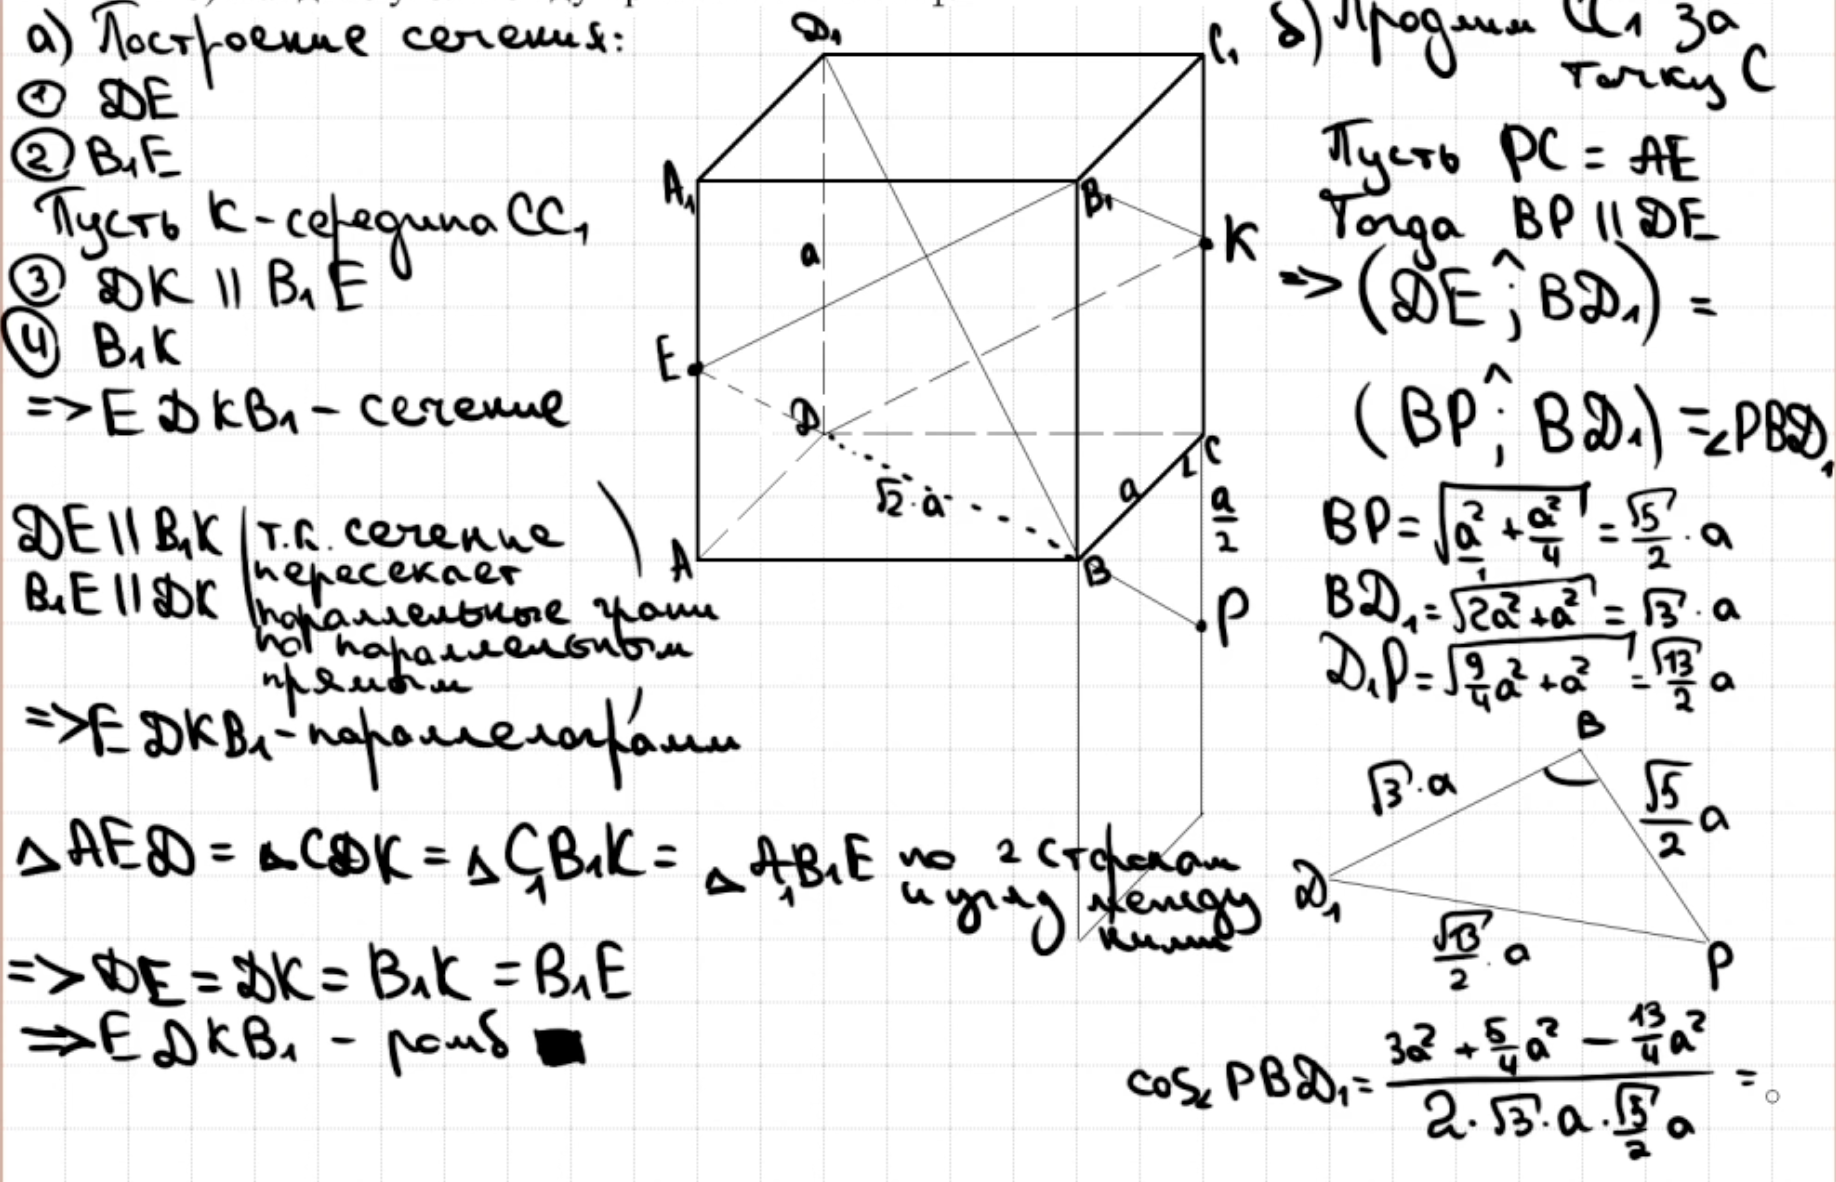 а) Построение сечения:
① DE
② B₁E
Пусть K - середина CC₁
③ DK || B₁E
④ B₁K
=> EDKB₁ - сечение
DE || B₁K
B₁E || DK
т.к. сечение
пересекает
параллельные грани
по параллельным
прямым
=> EDKB₁ - параллелограмм
△AED = △CDK = △C₁B₁K = △A₁B₁E по 2 сторонам
и углу между
ними
=> DE = DK = B₁K = B₁E
=> EDKB₁ - ромб ■
D₁
C₁
A₁
B₁
K
a
E
D
C
√2·a
a
a/2
A
B
P
б) Продлим CC₁ за
точку C
Пусть PC = AE
Тогда BP || DE
=> (DE ^; BD₁) =
(BP ^; BD₁) = ∠PBD₁
BP = √(a²/1 + a²/4) = √5/2 · a
BD₁ = √(2a² + a²) = √3 · a
D₁P = √(9/4 a² + a²) = √13/2 a
B
√3·a
√5/2 a
D₁
√13/2 · a
P
cos∠PBD₁ = (3a² + 5/4 a² - 13/4 a²) / (2·√3·a·√5/2 a) =